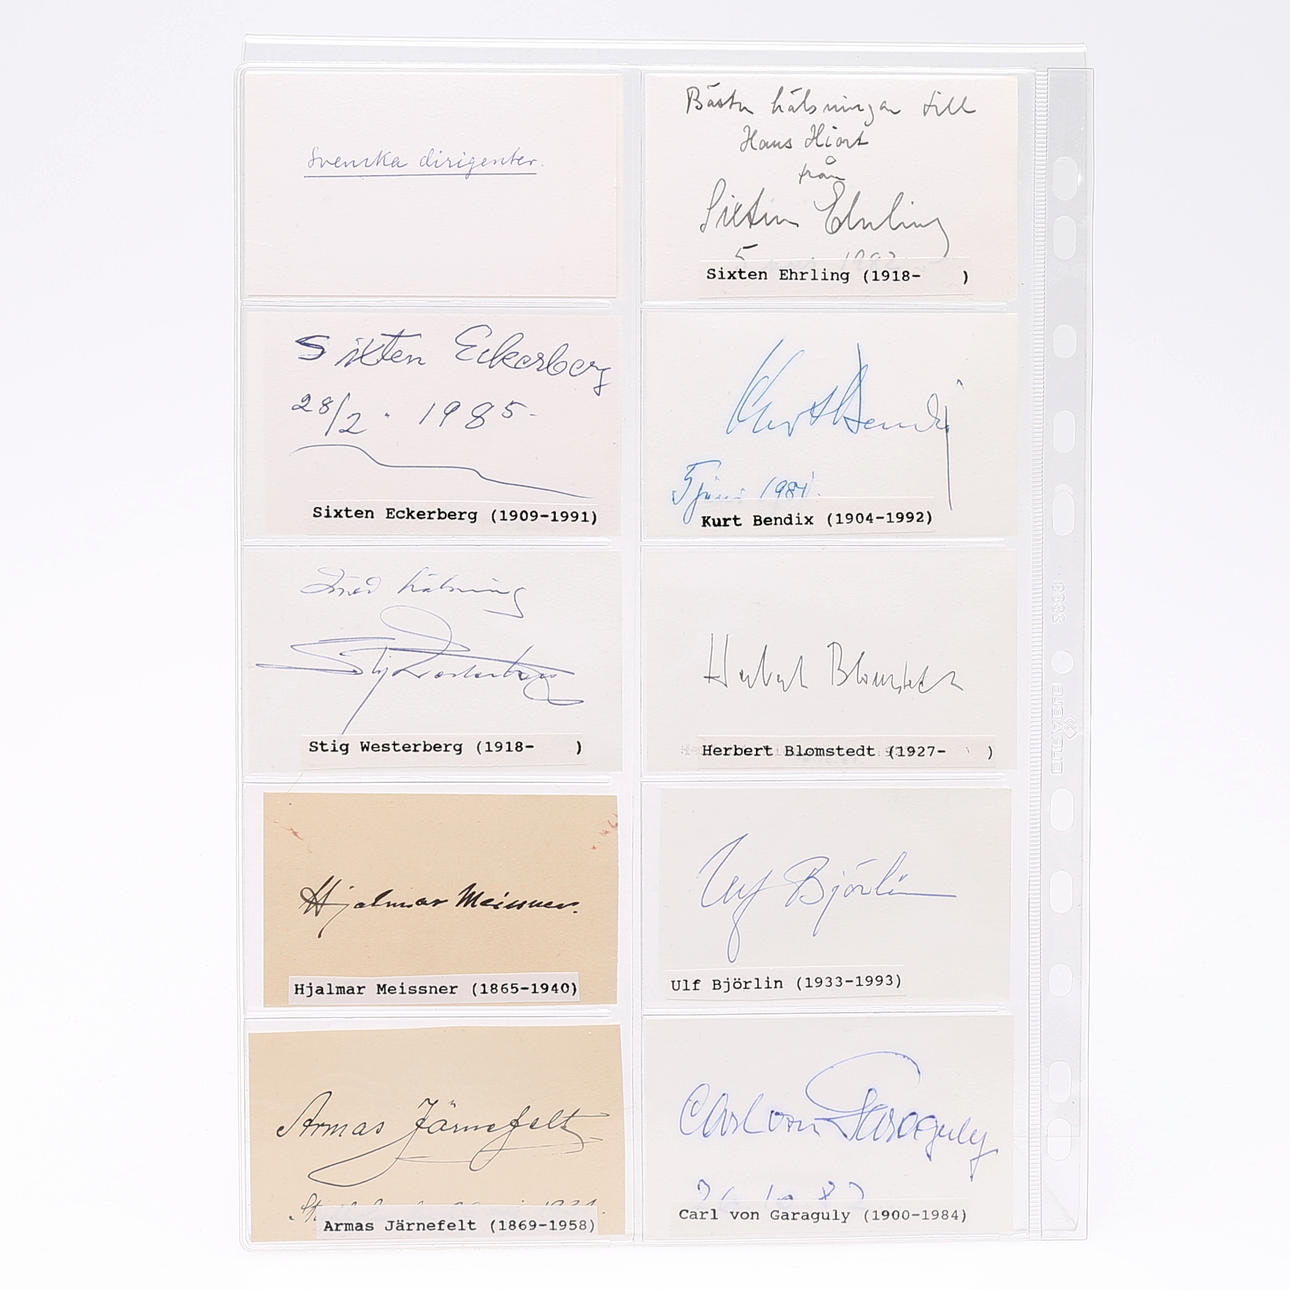 Svenska dirigenter.
Bästa hälsningar till
Hans Hiort
från
Sixten Ehrling
5
Sixten Ehrling (1918-    )
Sixten Eckerberg
28/2 . 1985-
Sixten Eckerberg (1909-1991)
Kurt Bendix
5 juni 1981.
Kurt Bendix (1904-1992)
Med hälsning
Stig Westerberg
Stig Westerberg (1918-    )
Herbert Blomstedt
Herbert Blomstedt (1927-    )
Hjalmar Meissner.
Hjalmar Meissner (1865-1940)
Ulf Björlin
Ulf Björlin (1933-1993)
Armas Järnefelt
Armas Järnefelt (1869-1958)
Carl von Garaguly
Carl von Garaguly (1900-1984)